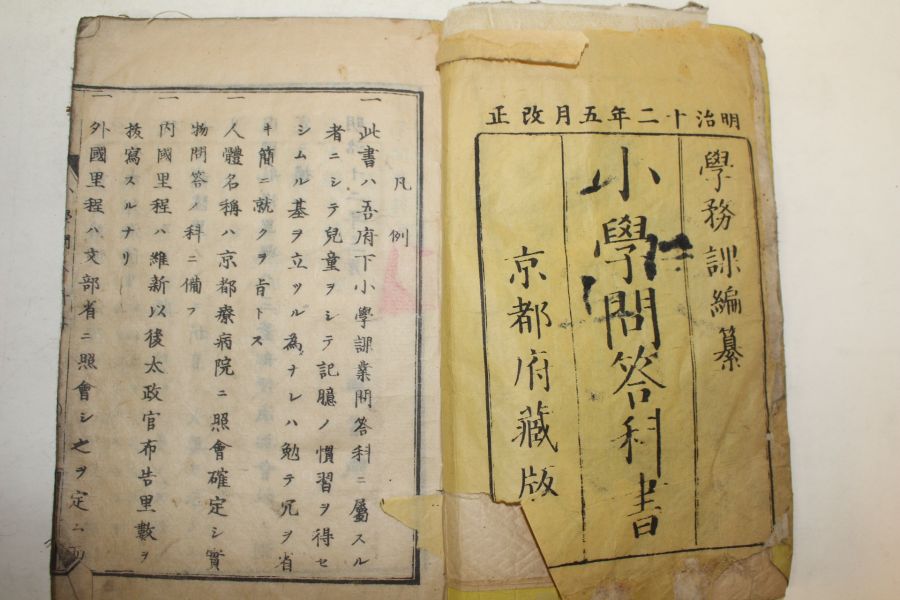 明治十二年五月改正
學務課編纂
小學問答科書
京都府藏版
凡例
一 此書ハ吾府下小學課業問答科ニ屬スル
者ニシテ兒童ヲシテ記臆ノ慣習ヲ得セ
シムル基ヲ立ツル為ナレハ勉テ冗ヲ省
キ簡ニ就クヲ旨トス
一 人體名稱ハ京都療病院ニ照會確定シ實
物問答ノ科ニ備フ
一 內國里程ハ維新以後太政官布告里數ヲ
拔寫スルナリ
一 外國里程ハ文部省ニ照會シ之ヲ定ム